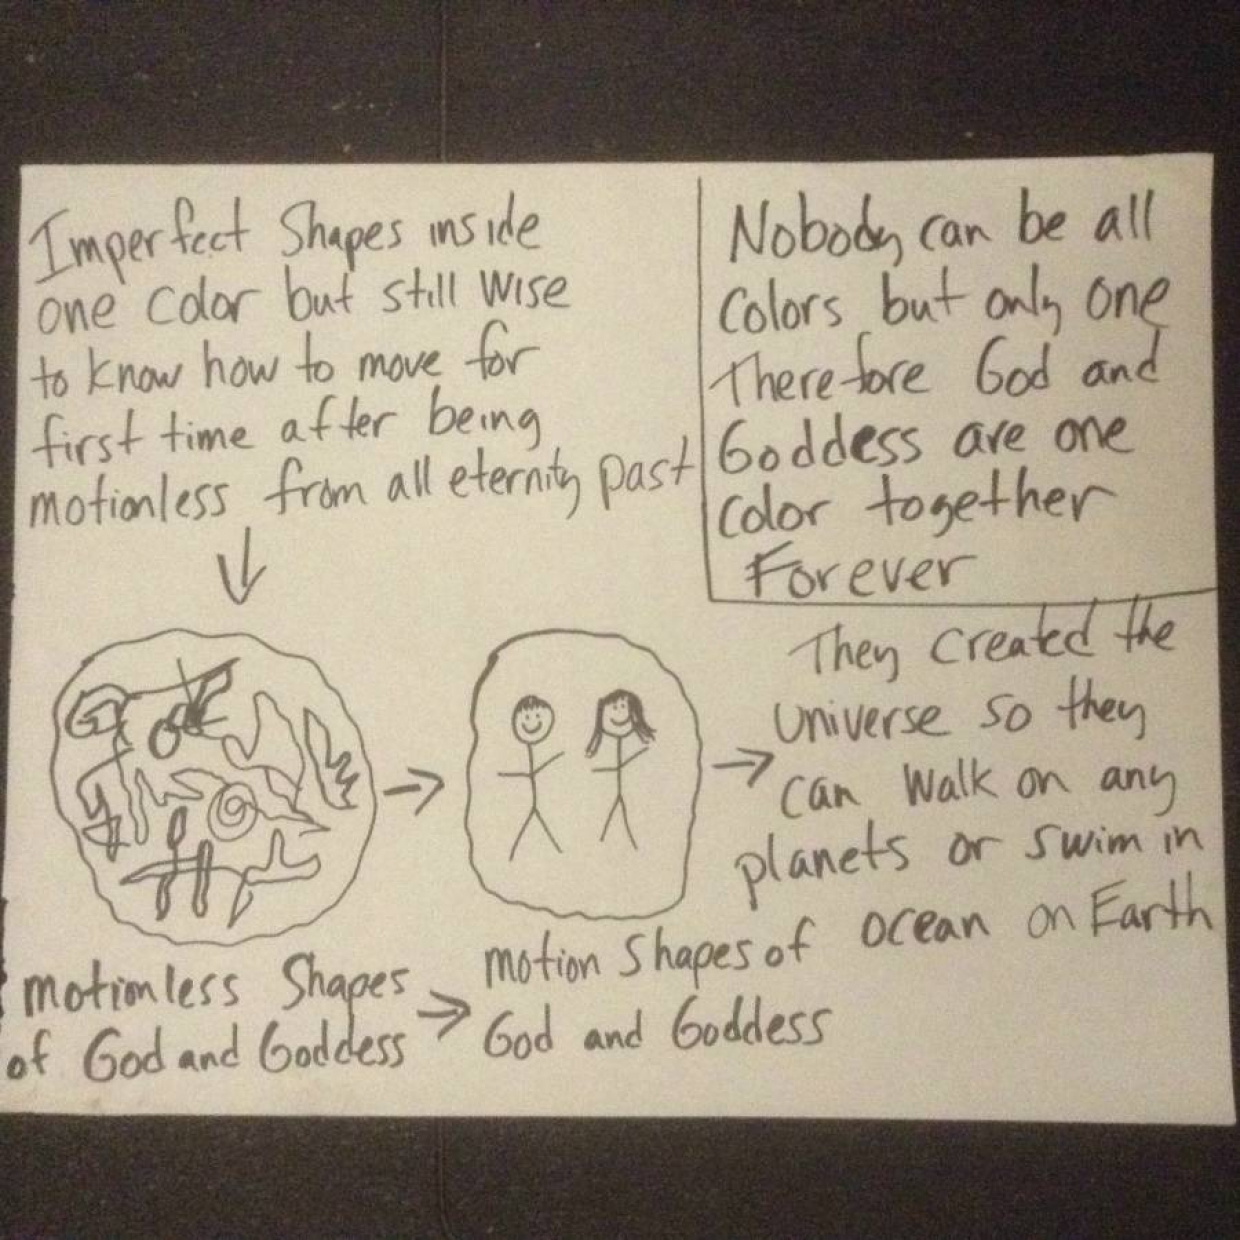 Imperfect Shapes inside
one color but still wise
to know how to move for
first time after being
motionless from all eternity past
Nobody can be all
colors but only one
Therefore God and
Goddess are one
color together
Forever
They created the
universe so they
can walk on any
planets or swim in
ocean on Earth
motionless Shapes
of God and Goddess
motion Shapes of
God and Goddess